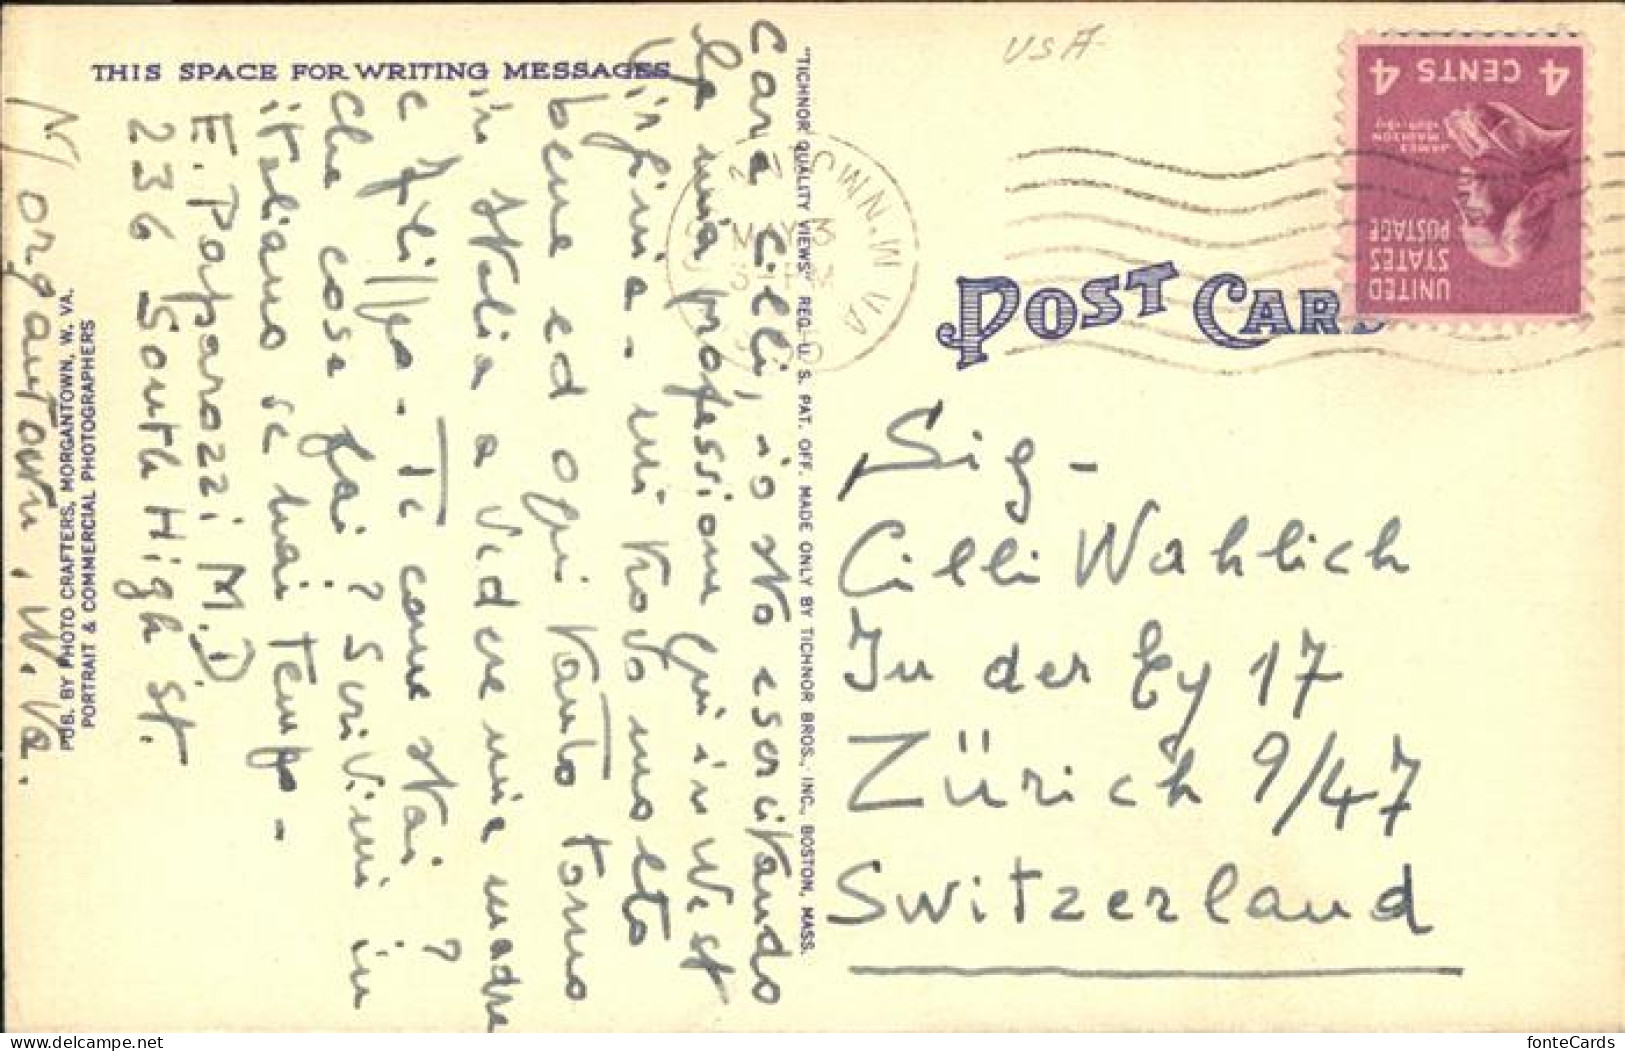 THIS SPACE FOR WRITING MESSAGES
Cara Cilli, io sto esercitando
la mia professione qui in West
Virginia - mi trovo molto
bene ed ogni tanto torno
in Italia a vedere mia madre
e
- Te come stai?
Che cosa fai? Scrivimi in
italiano se hai tempo -
E. Paparozzi M.D
236 South High St.
Morgantown, W. Va.
PUB. BY PHOTO CRAFTERS, MORGANTOWN, W. VA.
PORTRAIT & COMMERCIAL PHOTOGRAPHERS
"TICHNOR QUALITY VIEWS" REG. U. S. PAT. OFF. MADE ONLY BY TICHNOR BROS., INC., BOSTON, MASS.
USA
MAY 3
PM
W. VA
POST CARD
4 CENTS 4
JAMES
MADISON
UNITED
STATES
POSTAGE
Sig-
Cilli Wahlich
In der Ey 17
Zürich 9/47
Switzerland
delcampe.net
fonteCards